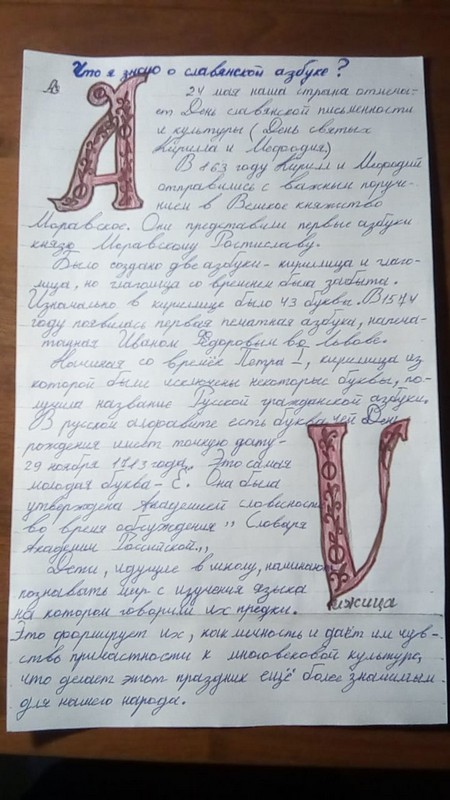 Что я знаю о славянской азбуке?
Аз
24 мая наша страна отмеча-
ет День славянской письменности
и культуры (День святых
Кирилла и Мефодия)
В 863 году Кирилл и Мефодий
отправились с важным поруче-
нием в Великое княжество
Моравское. Они представили первые азбуки
князю Моравскому Ростиславу.
Было создано две азбуки - кириллица и глаго-
лица, но глаголица со временем была забыта.
Изначально в кириллице было 43 буквы. В 1574
году появилась первая печатная азбука, напеча-
танная Иваном Фёдоровым во Львове.
Начиная со времён Петра I, кириллица из
которой были исключены некоторые буквы, по-
лучила название Русской гражданской азбуки.
В русском алфавите есть буква чей День
рождения имеет точную дату -
29 ноября 1783 года. Это самая
молодая буква - Ё. Она была
утверждена Академией словесности
во время обсуждения ,, Словаря
Академии Российской,,
Дети, идущие в школу, начинают
познавать мир с изучения языка
на котором говорили их предки.
ижица
Это формирует их, как личность и даёт им чув-
ство причастности к многовековой культуре,
что делает этот праздник ещё более значимым
для нашего народа.